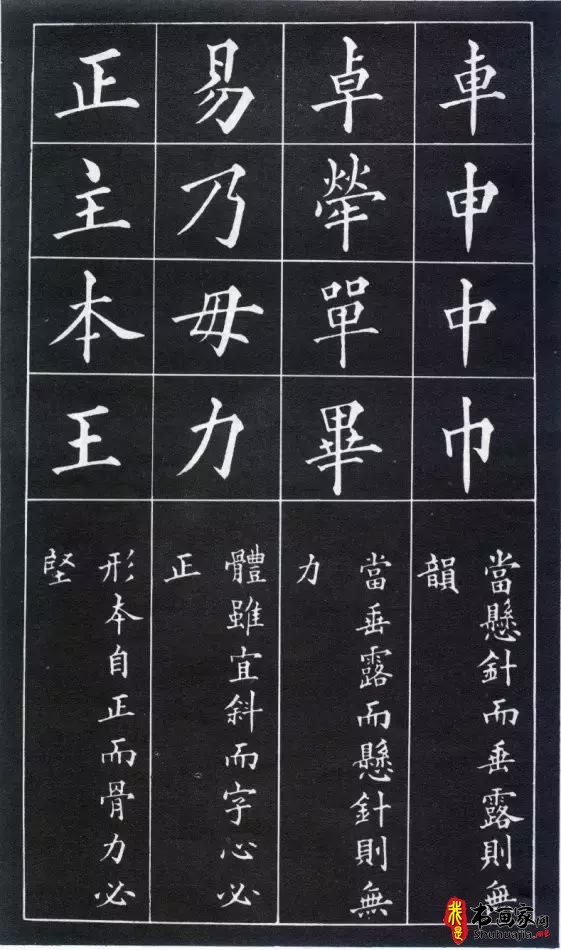 車申中巾
當懸針而垂露則無
韻
卓犖單畢
當垂露而懸針則無
力
易乃毋力
體雖宜斜而字心必
正
正主本王
形本自正而骨力必
堅
我是书画家网
Shuhuajia.net